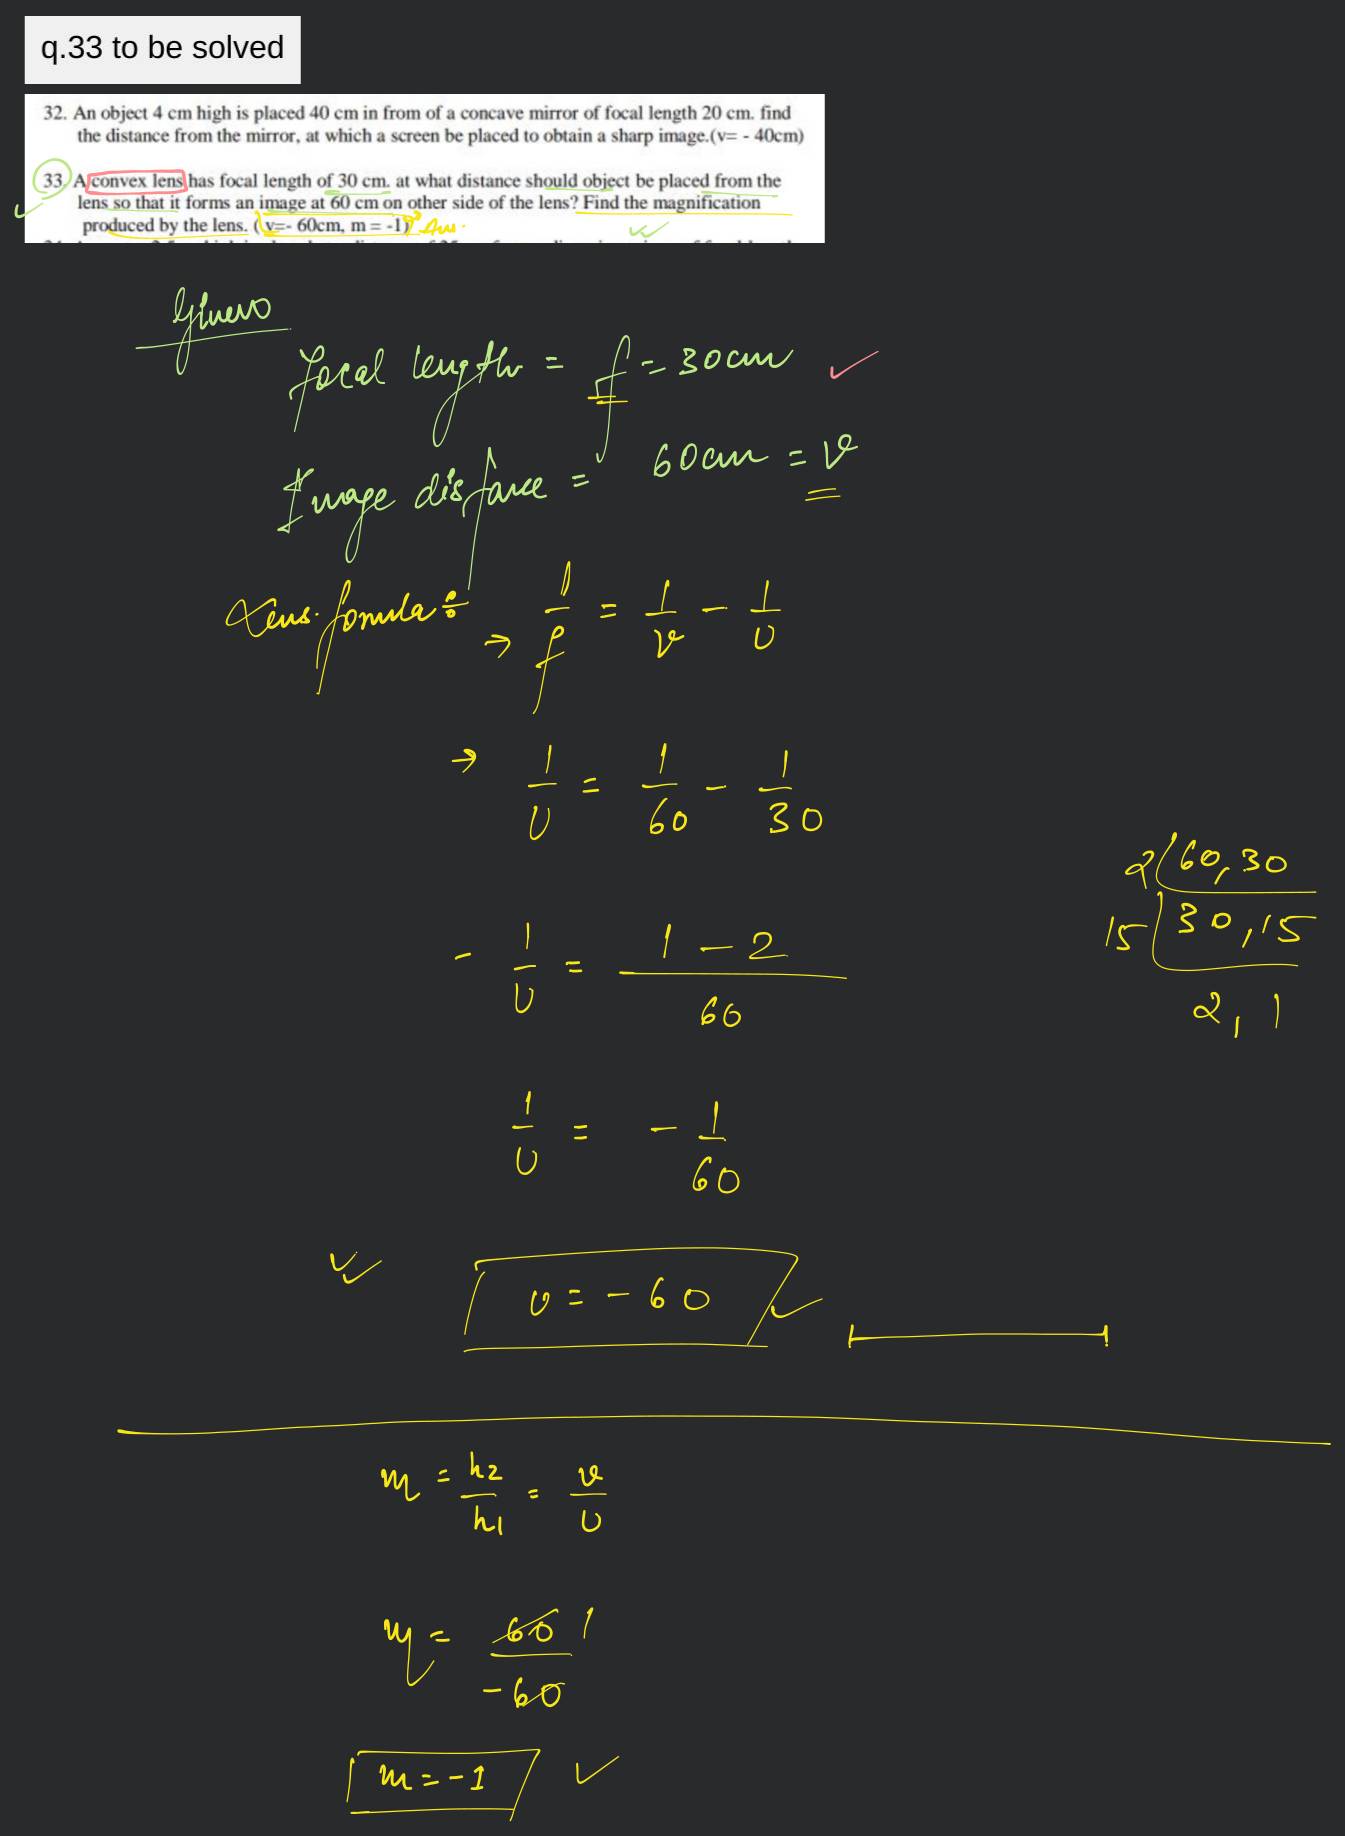 q.33 to be solved
32. An object 4 cm high is placed 40 cm in from of a concave mirror of focal length 20 cm. find
the distance from the mirror, at which a screen be placed to obtain a sharp image.(v= - 40cm)
33. A convex lens has focal length of 30 cm. at what distance should object be placed from the
lens so that it forms an image at 60 cm on other side of the lens? Find the magnification
produced by the lens. (v=- 60cm, m = -1) Ans.
Given
Focal length = f = 30cm
Image distance = 60cm = v
Lens formula :
→ 1/f = 1/v - 1/u
→ 1/u = 1/60 - 1/30
2 | 60, 30
15 | 30, 15
2, 1
- 1/u = 1 - 2 / 60
1/u = - 1/60
u = - 60
m = h2/h1 = v/u
m = 60 / -60 1
m = -1